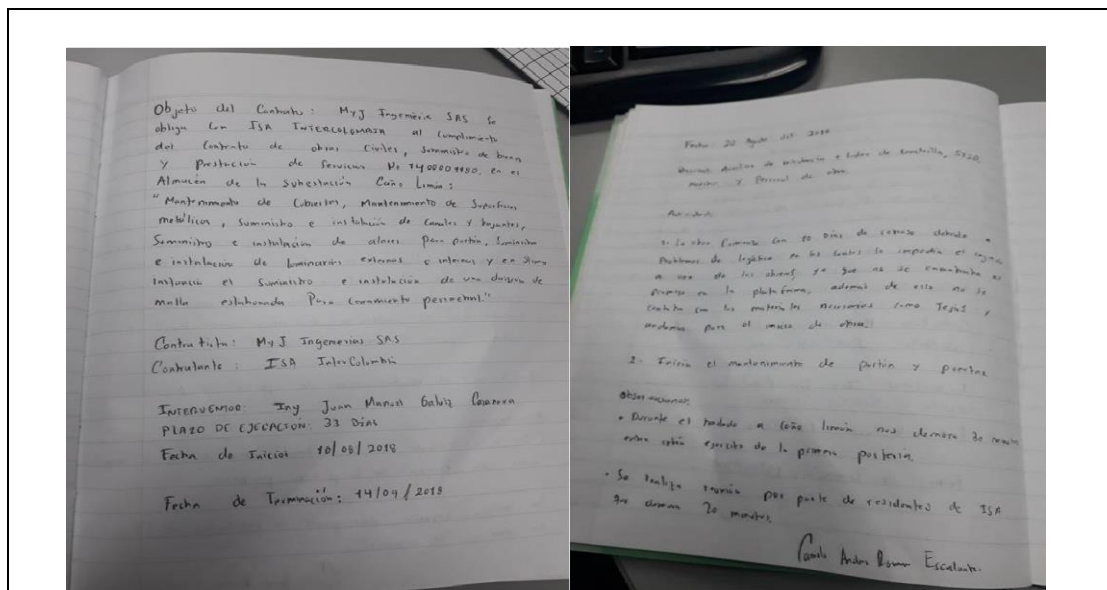 Objeto del Contrato: MyJ Ingeniería SAS se
obliga con ISA INTERCOLOMBIA al cumplimiento
del Contrato de obras Civiles, suministro de bienes
y Prestación de Servicios No
Almacén de la Subestación Caño Limón:
"Mantenimiento de Cubiertas, Mantenimiento de Superficies
metálicas, Suministro e instalación de canales y bajantes,
Suministro e instalación de para portón, Suministro
e instalación de luminarias externas e internas y en
instancia el suministro e instalación de una división de
malla eslabonada Para Cerramiento perimetral."
Contratista: MyJ Ingenierias SAS
Contratante: ISA InterColombia
INTERVENTOR: Ing Juan Manuel Galviz
PLAZO DE EJECUCIÓN: 33 Días
Fecha de Inicio: 10/08/2018
Fecha de Terminación: 14/09/2018
Fecha: 20 Agosto del 2018
y Personal de obra.
1. La obra con 10 Días de retraso debido a
Problemas de logística en los cuales se impedía el ingreso
a uno de los obreros, ya que no se encontraba
en la plataforma, además de esto no se
contaba con los materiales necesarios como Tejas y
andamios para el inicio de obra.
2. Inicia el mantenimiento de portón y puertas
Observaciones:
• Durante el traslado a Caño limón nos demora 30 minutos
ejército de la primera
• Se realiza reunión por parte de residentes de ISA
20 minutos.
Camilo Andres Escalante.